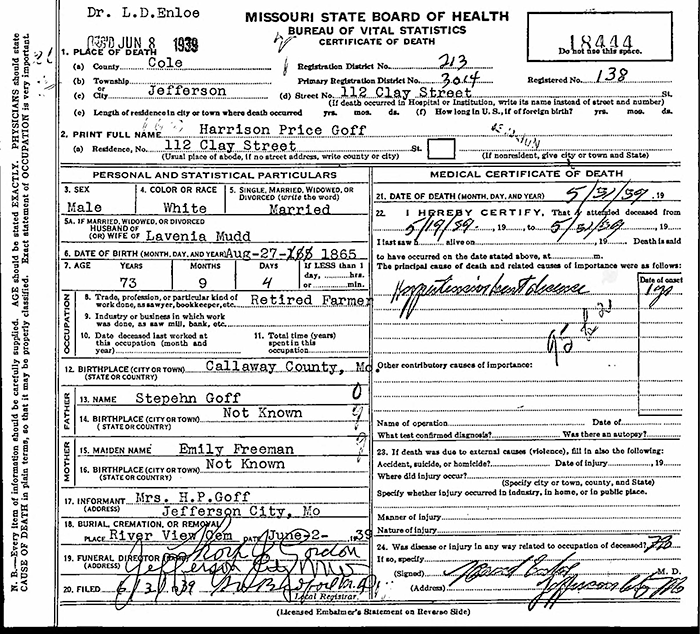 Dr. L.D.Enloe
MISSOURI STATE BOARD OF HEALTH
BUREAU OF VITAL STATISTICS
CERTIFICATE OF DEATH
REC'D JUN 8 1939
18444
Do not use this space.
1. PLACE OF DEATH
(a) County Cole
Registration District No. 213
(b) Township
Primary Registration District No. 3014
Registered No. 138
or
(c) City Jefferson (d) Street No. 112 Clay Street St.
(If death occurred in Hospital or Institution, write its name instead of street and number)
(e) Length of residence in city or town where death occurred yrs. mos. ds. (f) How long in U. S., if of foreign birth? yrs. mos. ds.
2. PRINT FULL NAME Harrison Price Goff
(a) Residence, No. 112 Clay Street St.
(Usual place of abode, if no street address, write county or city) (If nonresident, give city or town and State)
PERSONAL AND STATISTICAL PARTICULARS
3. SEX 4. COLOR OR RACE 5. SINGLE, MARRIED, WIDOWED, OR
DIVORCED (write the word)
Male White Married
5A. IF MARRIED, WIDOWED, OR DIVORCED
HUSBAND OF
(OR) WIFE OF Lavenia Mudd
6. DATE OF BIRTH (MONTH, DAY, AND YEAR) Aug-27- 1865
7. AGE YEARS MONTHS DAYS If LESS than 1
day, hrs.
or min.
73 9 4
OCCUPATION
8. Trade, profession, or particular kind of
work done, as sawyer, bookkeeper, etc. Retired Farmer
9. Industry or business in which work
was done, as saw mill, bank, etc.
10. Date deceased last worked at
this occupation (month and
year)
11. Total time (years)
spent in this
occupation
12. BIRTHPLACE (CITY OR TOWN) Callaway County, Mo.
(STATE OR COUNTRY)
FATHER
13. NAME Stepehn Goff
14. BIRTHPLACE (CITY OR TOWN) Not Known
(STATE OR COUNTRY)
MOTHER
15. MAIDEN NAME Emily Freeman
16. BIRTHPLACE (CITY OR TOWN) Not Known
(STATE OR COUNTRY)
17. INFORMANT Mrs. H.P.Goff
(ADDRESS) Jefferson City, Mo
18. BURIAL, CREMATION, OR REMOVAL
PLACE River View Cem DATE June-2- 1939
19. FUNERAL DIRECTOR Gordon
(ADDRESS) Jefferson City
20. FILED 6/3 1939
Local Registrar.
MEDICAL CERTIFICATE OF DEATH
21. DATE OF DEATH (MONTH, DAY, AND YEAR) 5/31/39 , 19
22. I HEREBY CERTIFY, That I attended deceased from
5/19/39, , 19 to 5/31/39 , 19
I last saw h alive on , 19 Death is said
to have occurred on the date stated above, at m.
The principal cause of death and related causes of importance were as follows:
Date of onset
Hypertensive heart disease
Other contributory causes of importance:
Name of operation Date of
What test confirmed diagnosis? Was there an autopsy?
23. If death was due to external causes (violence), fill in also the following:
Accident, suicide, or homicide? Date of injury , 19
Where did injury occur?
(Specify city or town, county, and State)
Specify whether injury occurred in industry, in home, or in public place.
Manner of injury
Nature of injury
24. Was disease or injury in any way related to occupation of deceased? No
If so, specify
(Signed) M. D.
(Address) Jefferson City Mo
(Licensed Embalmer's Statement on Reverse Side)
N. B.—Every item of information should be carefully supplied. AGE should be stated EXACTLY. PHYSICIANS should state
CAUSE OF DEATH in plain terms, so that it may be properly classified. Exact statement of OCCUPATION is very important.